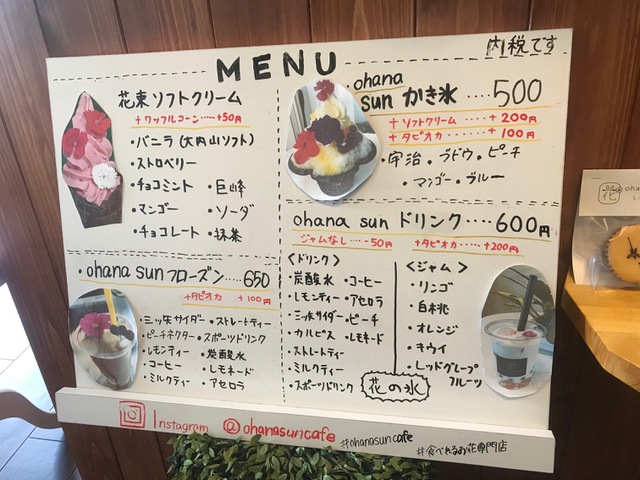 MENU
内税です
花束ソフトクリーム
+ワッフルコーン‥‥+50円
・バニラ(大内山ソフト)
・ストロベリー
・チョコミント ・巨峰
・マンゴー ・ソーダ
・チョコレート ・抹茶
・ohana sun かき氷 ‥‥ 500
+ソフトクリーム‥‥+200円
+タピオカ‥‥‥+100円
・宇治 ・ブドウ ・ピーチ
・マンゴー ・ブルー
・ohana sun フローズン‥‥650
+タピオカ +100円
・三ッ矢サイダー ・ストレートティー
・ピーチネクター ・スポーツドリンク
・レモンティー ・炭酸水
・コーヒー ・レモネード
・ミルクティー ・アセロラ
ohana sun ドリンク‥‥600円
ジャムなし‥‥-50円 +タピオカ‥‥+200円
<ドリンク>
・炭酸水 ・コーヒー
・レモンティー ・アセロラ
・三ッ矢サイダー ・ピーチ
・カルピス ・レモネード
・ストレートティー
・ミルクティー
・スポーツドリンク
花の氷
<ジャム>
・リンゴ
・白桃
・オレンジ
・キウイ
・レッドグレープフルーツ
Instagram @ohanasuncafe
#ohanasuncafe
#食べれるお花専門店